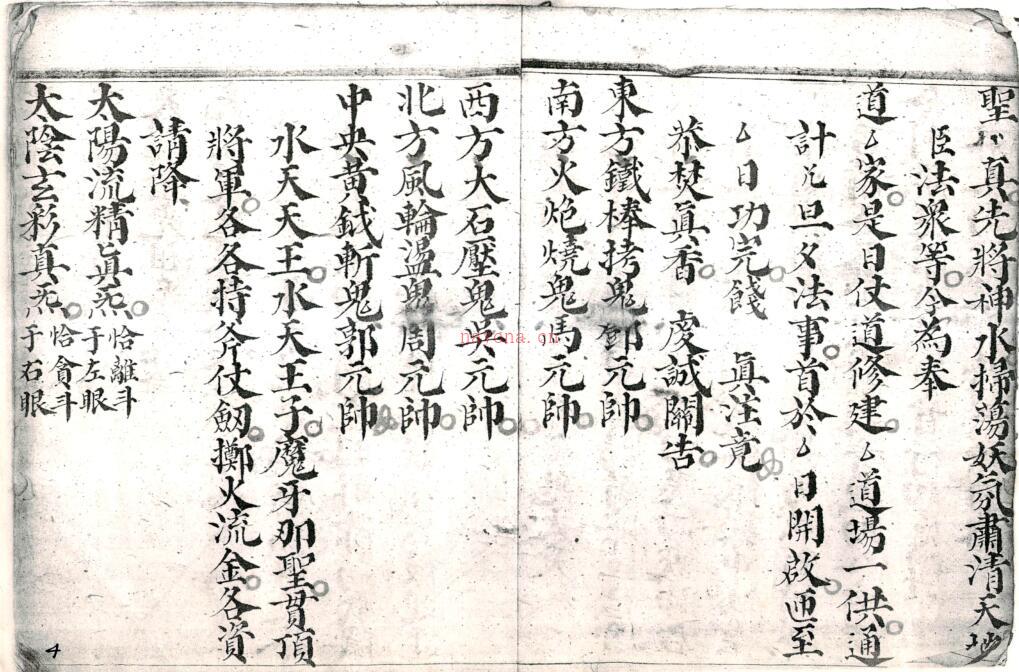 聖〻真先將神水掃蕩妖氛肅清天地
臣法衆等今為奉
道〻家是日仗道修建〻道場一供通
計〻旦夕法事首於〻日開啟迊至
〻日功完餞　真注竟
恭焚真香　虔誠關告
東方鐵棒拷鬼鄧元帥
南方火炮燒鬼馬元帥
西方大石壓鬼吳元帥
北方風輪盪鬼周元帥
中央黃鉞斬鬼郭元帥
水天天王水天王子魔牙夘聖貫頂
將軍各各持斧仗劔擲火流金各資
請降
太陽流精真炁恰離斗于左眼
太陰玄彩真炁恰貪斗于右眼
nayona.cn
4